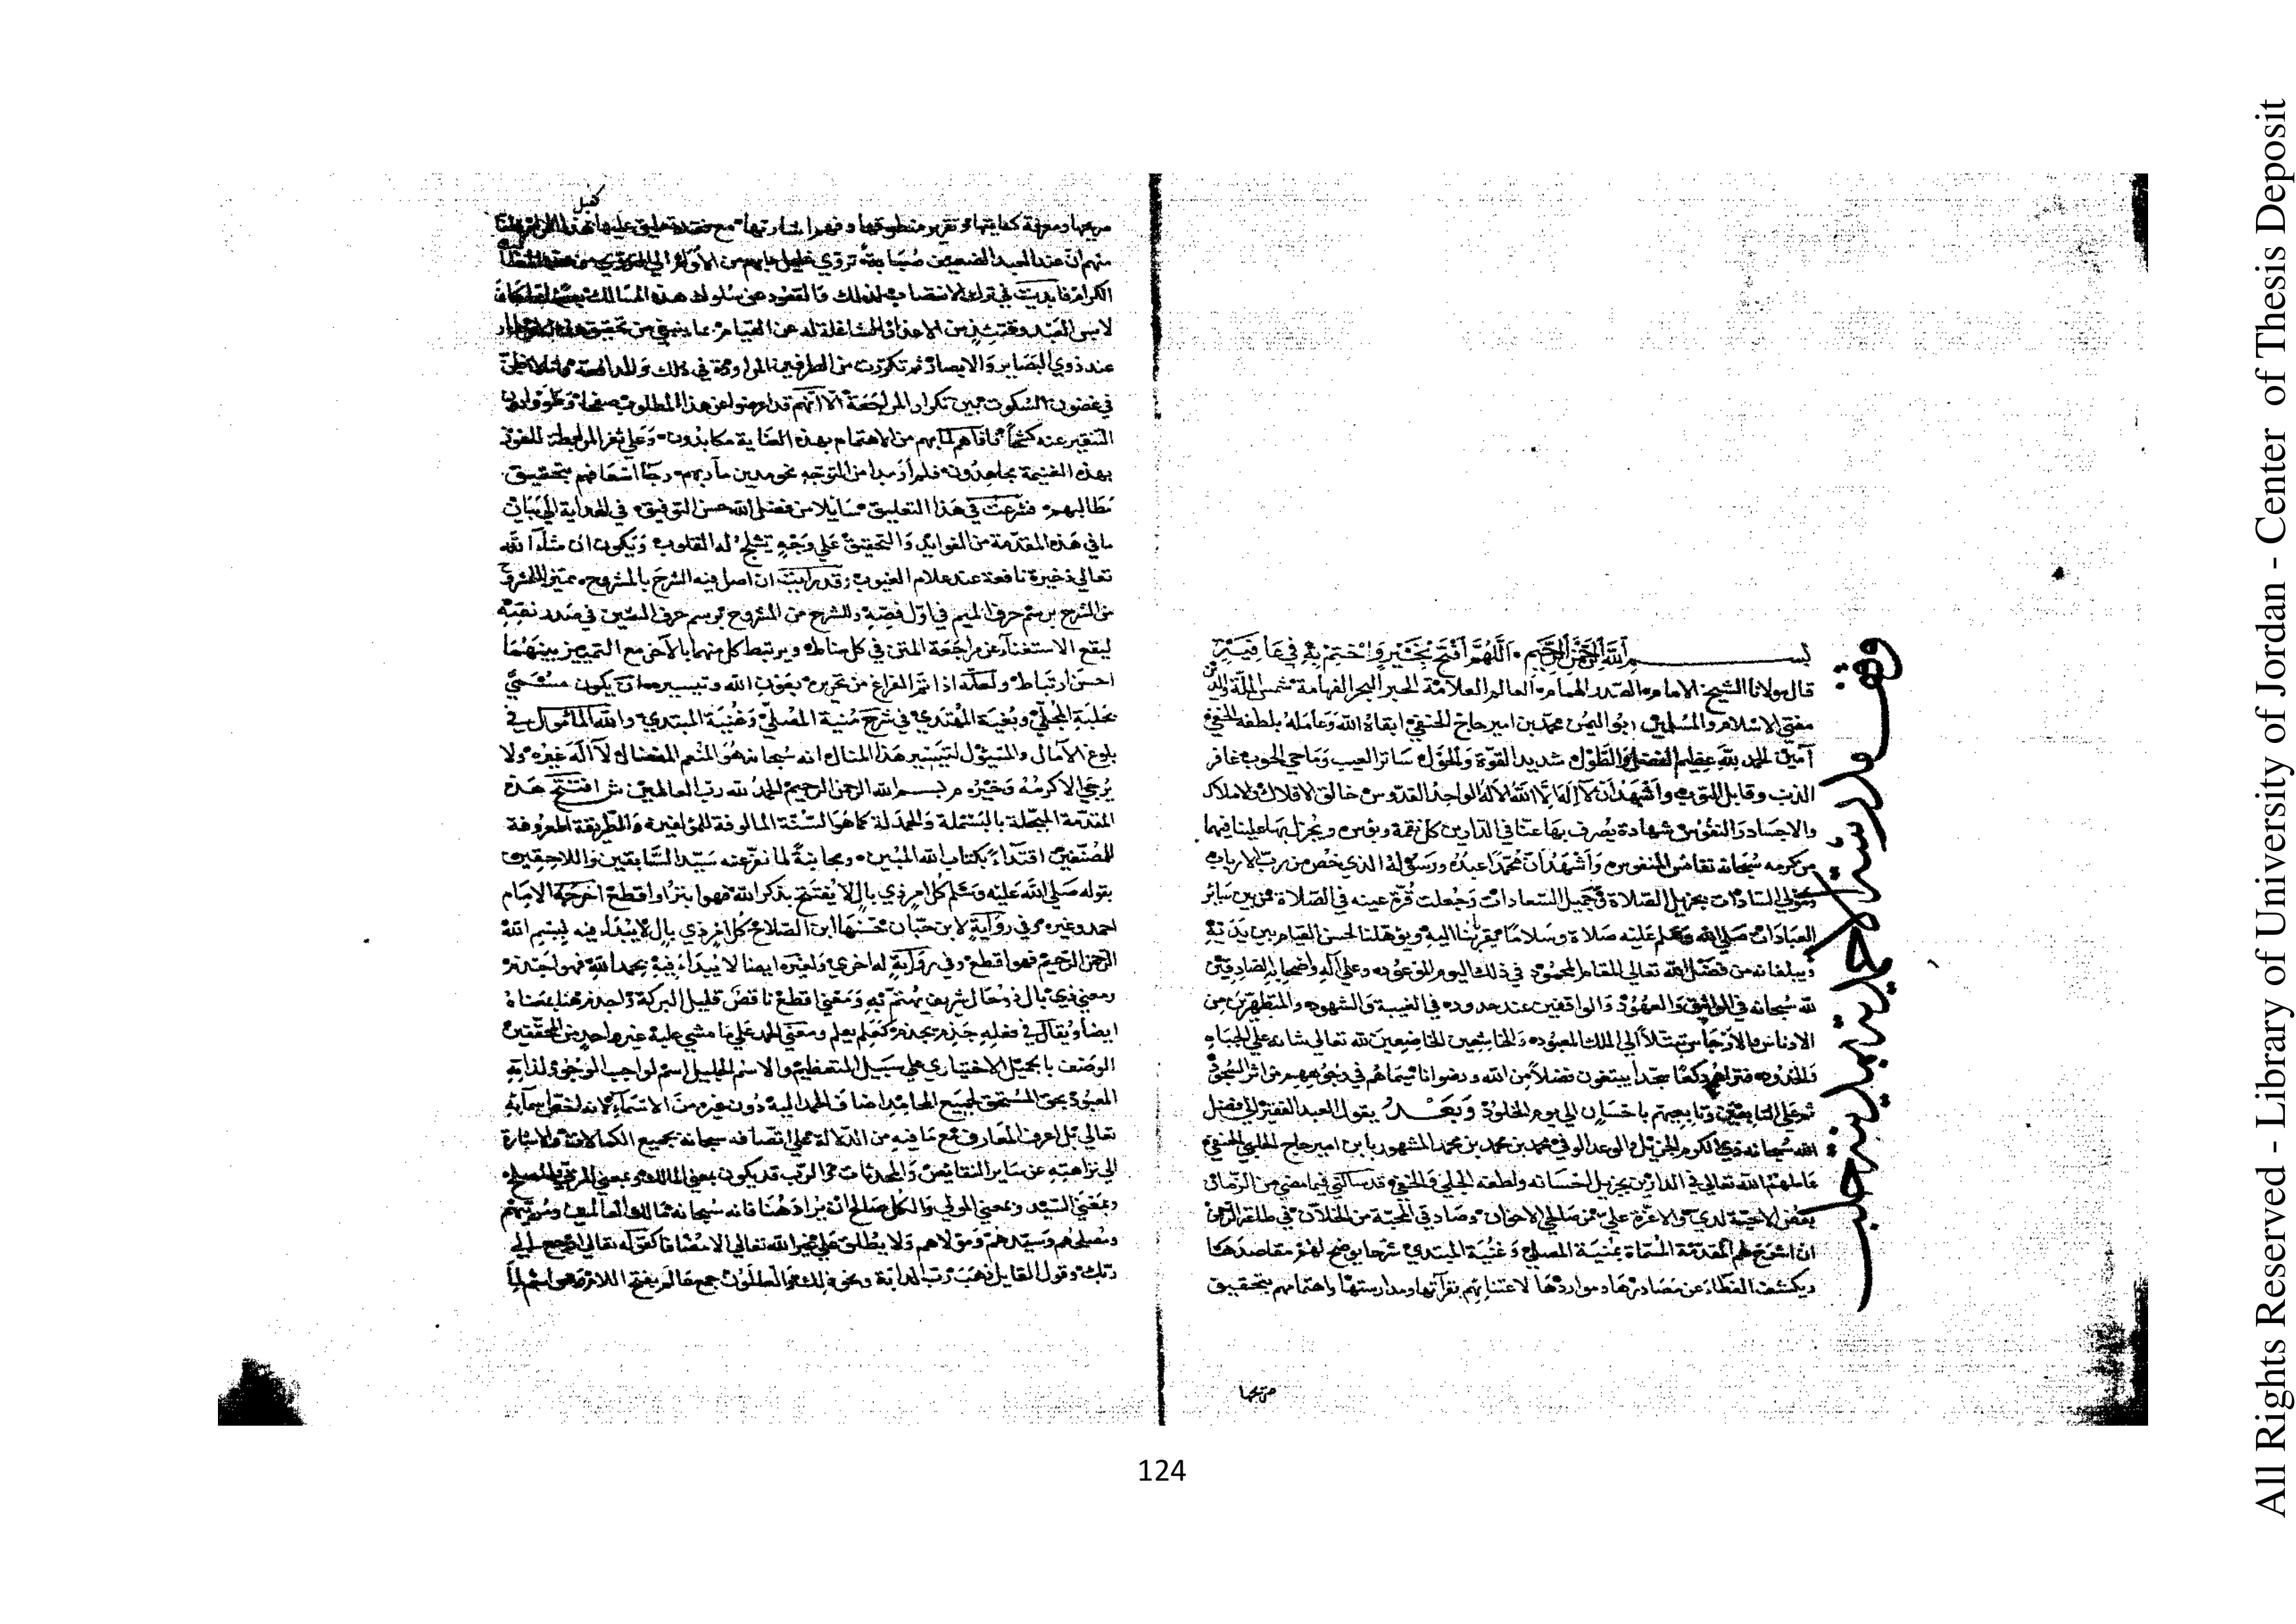 بسم الله الرحمن الرحيم. اللهم افتح بخير واختم به في عافية
قال مولانا الشيخ الامام الصدر الهمام العالم العلامة الحبر البحر الفهامة شمس الملة والدين
مفتي الاسلام والمسلمين ابو اليمن محمد بن امير حاج الحنفي ابقاه الله وعامله بلطفه الخفي
آمين الحمد لله عظيم الفضل والطول شديد القوة والحول ساتر العيب وماحي الحوب غافر
الذنب وقابل التوب واشهد ان لا اله الا الله الاله الواحد القدوس خالق الافلاك والاملاك
والاجساد والنفوس شهادة يصرف بها عنا في الدارين كل نقمة وبؤس ويجزل بها علينا فيهما
من كرمه سبحانه نفائس النفوس واشهد ان محمدا عبده ورسوله الذي خص من رب الارباب
بجزيل الصلاة وجميل السعادات وجعلت قرة عينه في الصلاة من بين سائر
العبادات صلى الله وسلم عليه صلاة وسلاما يقربنا اليه ويؤهلنا لحسن القيام بين يديه
ويبلغانه من فضل الله تعالى المقام المحمود في ذلك اليوم الموعود وعلى آله واصحابه الصادقين
لله سبحانه في المواثيق والعهود والواقفين عند حدوده في الغيبة والشهود والمتطهرين من
الادناس والارجاس الى الملك المعبود والخاشعين الخاضعين لله تعالى شانه على الجباه
والخدود فتراهم ركعا سجدا يبتغون فضلا من الله ورضوانا سيماهم في وجوههم من اثر السجود
ثم على التابعين وتابعيهم باحسان الى يوم الخلود وبعد يقول العبد الفقير الى فضل
الله سبحانه ذي الكرم الجزيل والوعد الوفي محمد بن محمد بن محمد المشهور بابن امير حاج الحلبي الحنفي
عاملهم الله تعالى في الدارين بجزيل احسانه ولطفه الجلي والخفي قد سالني فيما مضى من الزمان
بعض الاحبة لدي والاعزة علي من صالحي الاخوان وصادقي المحبة من الخلان في طلعة الزمن
ان اشرح لهم المقدمة المسماة بمنية المصلي وغنية المبتدي شرحا يوضح لهم مقاصدها
ويكشف الغطاء عن مصادرها ومواردها لاعتنائهم بقرآتها ومدارستها واهتمامهم بتحقيق
وقف مدرسة احمدية بمدينة حلب
ومعرفة كفايتها وتقرير منطوقها وفهم اشارتها مع
منهم ان عند العبد الضعيف صبابة تروي
الكرام فابديت في ترك الانتصاب لذلك والقعود عن سلوك هذه المسالك
لاسي العبد وقتئذ من الاحزان الشاغلة له عن القيام بما ينبغي من تحقيق
عند ذوي البصاير والابصار ثم تكررت من الطرفين المراودة في ذلك والمدافعة
في غضون السكوت حين تكرار المراجعة الا انهم قد اعرضوا عن هذا المطلوب صفحا
التنقير عنه كشحا فاذا هم لما بهم من الاهتمام بهذه الغاية مكابدون وعلى ثغر المرابطة للفوز
بهذه الغنيمة مجاهدون فلم ار بدا من التوجه نحو مدين مآربهم رجا اسعافهم بتحقيق
مطالبهم فشرعت في هذا التعليق سايلا من فضل الله حسن التوفيق في الهداية الى بيان
ما في هذه المقدمة من الفوايد والتحقيق على وجه يثلج له القلوب ويكون ان شاء الله
تعالى ذخيرة نافعة عند علام الغيوب وقد رايت ان اصل فيه الشرح بالمشروح مميزا للمشروح
من الشرح برسم حرف الميم في اول قصته وللشرح من المشروح برسم حرف الشين في صدر نصته
ليقع الاستغناء عن مراجعة المتن في كل مناط ويرتبط كل منهما بالآخر مع التمييز بينهما
احسن ارتباط ولعله اذا تم الفراغ من تحريره بعون الله وتيسيره ان يكون مسمى
بحلبة المجلي وبغية المهتدي في شرح منية المصلي وغنية المبتدي والله المأمول في
بلوغ الآمال والمسئول لتيسير هذا المنال انه سبحانه هو المنعم المفضال لا اله غيره ولا
يرجى الا كرمه وخيره م بسم الله الرحمن الرحيم الحمد لله رب العالمين ش افتتح هذه
المقدمة المبجلة بالبسملة والحمدلة كما هو السنة المالوفة للمؤلفين والطريقة المعروفة
للمصنفين اقتداء بكتاب الله المبين ومجانبة لما نفر عنه سيد السابقين واللاحقين
بقوله صلى الله عليه وسلم كل امر ذي بال لا يفتتح بذكر الله فهو ابتر او اقطع اخرجه الامام
احمد وغيره وفي رواية لابن حبان حسنها ابن الصلاح كل امر ذي بال لا يبداء فيه ببسم الله
الرحمن الرحيم فهو اقطع وفي رواية له اخري ولغيره ايضا لا يبداء فيه بحمد الله فهو اجذم
ومعني ذي بال ذو حال شريف يهتم به ومعني اقطع ناقص قليل البركة واجذم هنا بمعناه
ايضا ويقال في فعله جذم يجذم كعلم يعلم ومعني الحمد علي ما مشي عليه غير واحد من المحققين
الوصف بالجميل الاختياري على سبيل التعظيم والاسم الجليل اسم لواجب الوجود لذاته
المعبود بحق المستحق لجميع المحامد اضاف الحمد اليه دون غيره من الاسماء لانه اخص اسمآئه
تعالى بل اعرف المعارف مع ما فيه من الدلالة على اتصافه سبحانه بجميع الكمالات والاشارة
الى نزاهته عن ساير النقايص والمحدثات والرب قد يكون بمعني المالك وبمعني المربي المصلح
وبمعني السيد وبمعني المولي والكل صالح لان يراد هنا فانه سبحانه مالك العالمين ومربيهم
ومصلحهم وسيدهم ومولاهم ولا يطلق على غير الله تعالى الا مضافا كقوله تعالى ارجع الي
ربك وقول القايل ذهب رب الدابة ونحو ذلك والعالمون جمع عالم بفتح اللام
124
All Rights Reserved - Library of University of Jordan - Center of Thesis Deposit